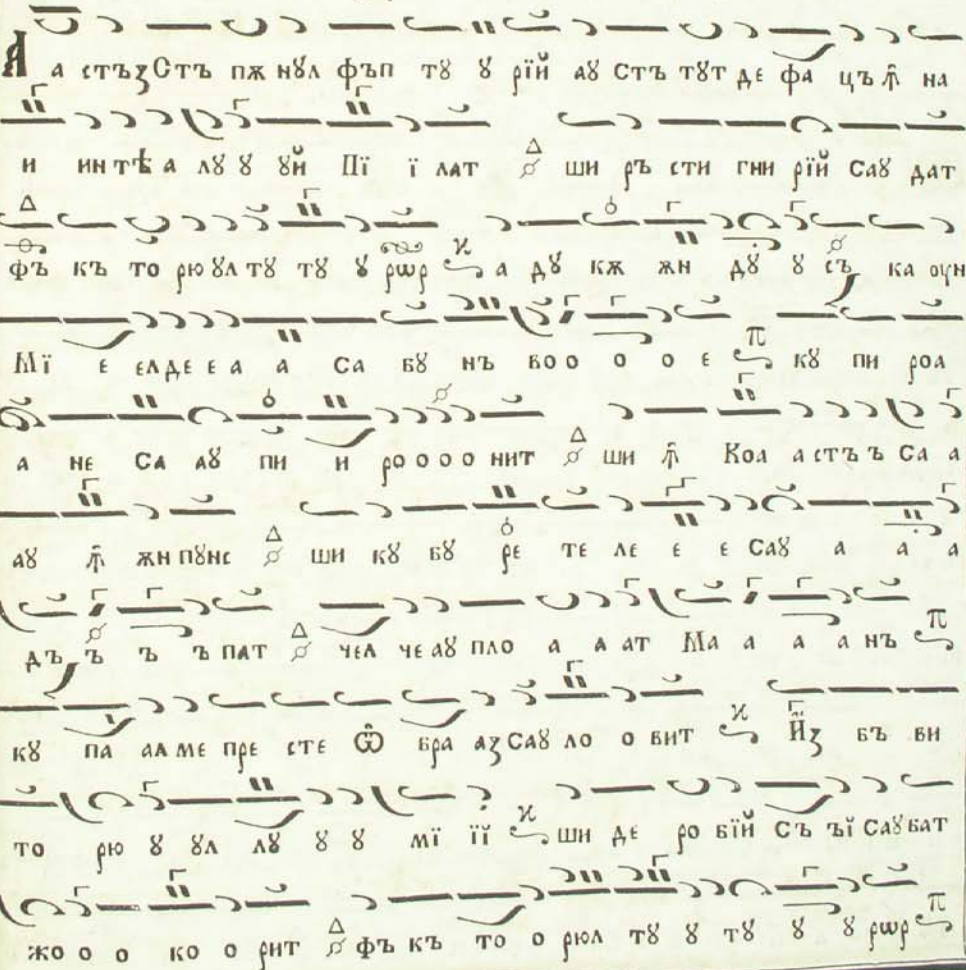 А а стъꙁ Стъ пѫ нꙋл фъп тꙋ ꙋ рїй аꙋ Стъ тꙋт де фа цъ ꙟ на
и ин тѣ а лꙋ ꙋ ꙋй Пї ї лат Δ ши ръ сти гни рїй Саꙋ дат
фъ къ то рю ꙋл тꙋ тꙋ ꙋ рѡр ϰ а дꙋ кѫ ѫн дꙋ ꙋ съ ка оун
Мї е ел де е а а Са бꙋ нъ во о о о е π кꙋ пи роа
а не Са аꙋ пи и ро о о о нит Δ ши ꙟ Коа а стъ ъ Са а
аꙋ ꙟ ѫн пꙋнс Δ ши кꙋ бꙋ ре те ле е е Саꙋ а а а
дъ ъ ъ ъ пат Δ чел че аꙋ пло а ꙗ ат Ма а а а нъ π
кꙋ па ал ме пре сте Ѡ бра аꙁ Саꙋ ло о вит ϰ Йꙁ бъ ви
то рю ꙋ ꙋл лꙋ ꙋ ꙋ мї її ϰ ши де ро бїй Съ ъї Саꙋ бат
жо о о ко о рит Δ фъ къ то о рюл тꙋ ꙋ тꙋ ꙋ ꙋ рѡр π